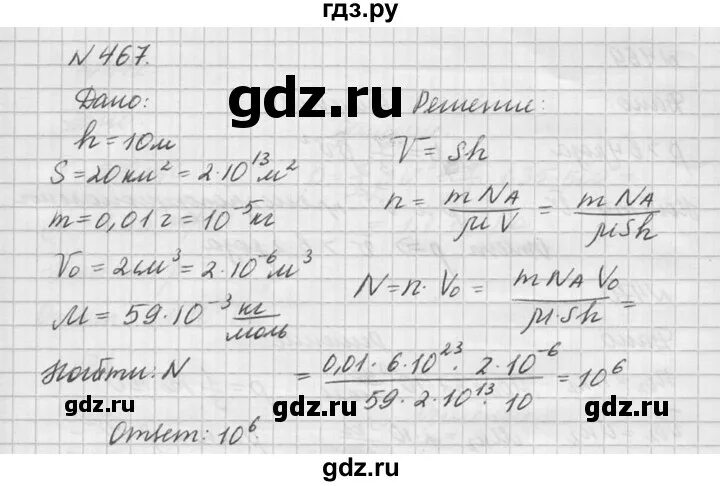 гдз.ру
№ 467.
gdz.ru
Дано:
h = 10м
S = 20км² = 2·10¹³м²
m = 0,01г = 10⁻⁵кг
V₀ = 2см³ = 2·10⁻⁶м³
M = 59·10⁻³ кг/моль
Найти: N
Решение:
V = Sh
n = mN_A/μV = mN_A/μSh
N = n·V₀ = mN_A V₀/μ·Sh =
= 0,01·6·10²³·2·10⁻⁶/59·2·10¹³·10 = 10⁶
Ответ: 10⁶.
gdz.ru
gdz.ru